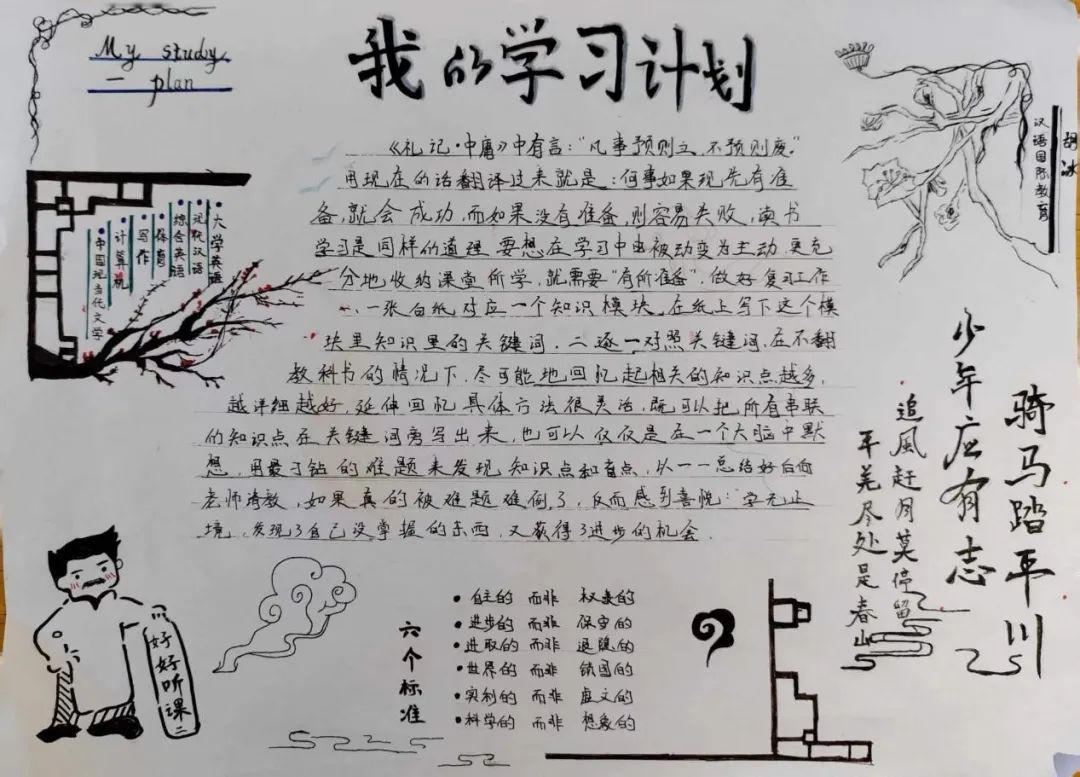 我的学习计划
My study
plan
胡冰
汉语国际教育
《礼记·中庸》中有言：“凡事预则立，不预则废。”
用现在的话翻译过来就是：何事如果现先有准
备，就会成功，而如果没有准备，则容易失败，读书
学习是同样的道理，要想在学习中由被动变为主动，更充
分地收纳课堂所学，就需要“有所准备”，做好复习工作
一、一张白纸对应一个知识模块，在纸上写下这个模
块里知识里的关键词，二逐一对照关键词，在不翻
教科书的情况下，尽可能地回忆起相关的知识点越多，
越详细越好，延伸回忆具体方法很灵活，既可以把所有串联
的知识点在关键词旁写出来，也可以仅仅是在一个大脑中默
想，用最刁钻的难题来发现知识点和盲点，从一一总结好后向
老师请教，如果真的被难题难倒了，反而感到喜悦：学无止
境，发现了自己没掌握的东西，又获得了进步的机会.
•大学英语
•现代汉语
•综合英语
•体育
•写作
•计算机
•中国现当代文学
骑马踏平川
少年应有志
追風赶月莫停留
平芜尽处是春山
好好听课
六个标准
•自主的 而非 奴隶的
•进步的 而非 保守的
•进取的 而非 退隐的
•世界的 而非 锁国的
•实利的 而非 虚文的
•科学的 而非 想象的